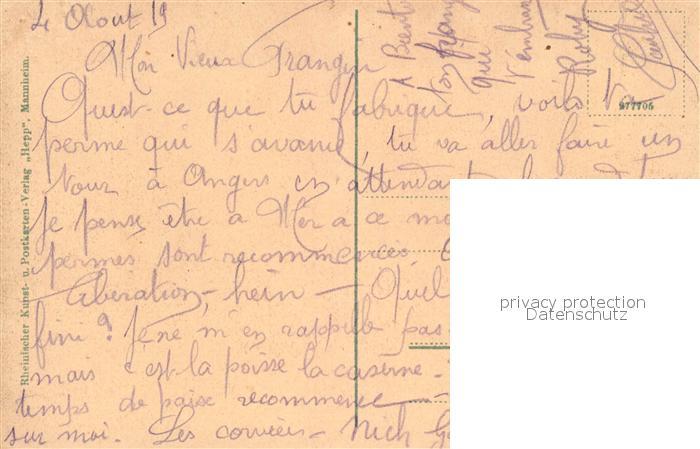 4 Aout 19
Mon Vieux Frangin
Quest-ce que tu fabrique, voilà ta
perme qui s'avance, tu va aller faire un
tour à Angers en attendant
je pense être à Mer a ce mo
permes sont recommencées.
Liberation, hein - Quel
fini? Je ne m'en rappelle pas
mais c'est la poisse la caserne -
temps de paise recommence -
sur moi. Les corvées - Nich
A Bientot
ton frangin
qui
t'embrasse
Roby
977706
Rheinischer Kunst- u. Postkarten-Verlag „Hepp", Mannheim.
privacy protection
Datenschutz